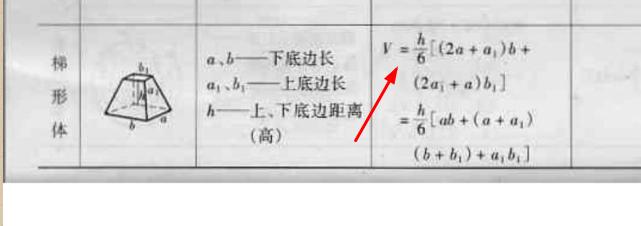 梯形体
b₁
a₁
h
b
a
a、b——下底边长
a₁、b₁——上底边长
h——上、下底边距离
(高)
V = h/6[(2a + a₁)b +
(2a₁ + a)b₁]
= h/6[ab + (a + a₁)
(b + b₁) + a₁b₁]